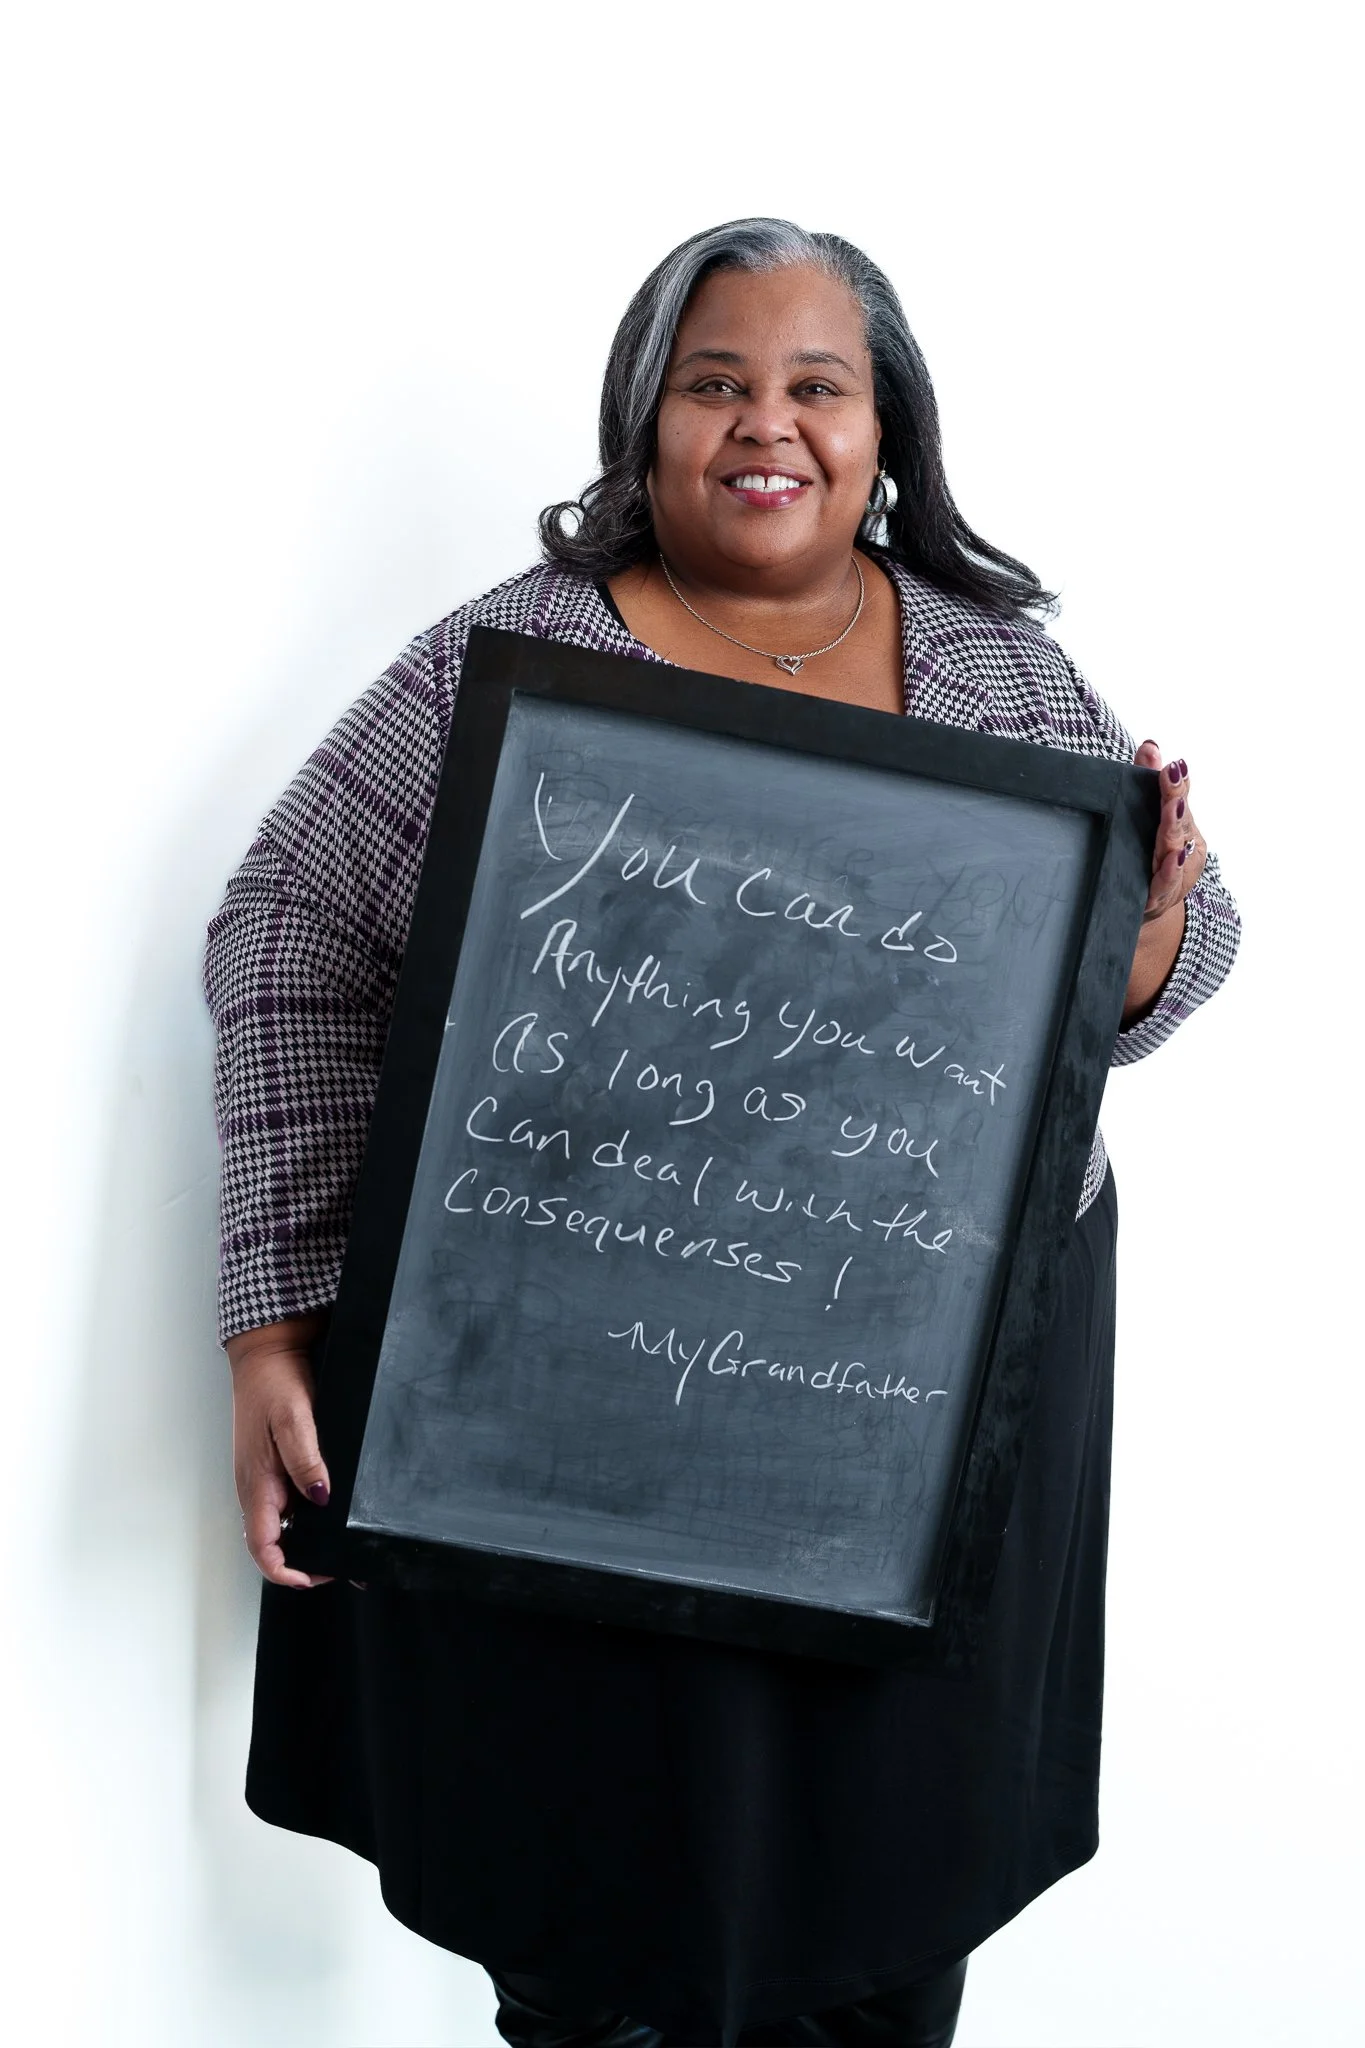 You can do
Anything you want
As long as you
can deal with the
Consequenses!
-My Grandfather